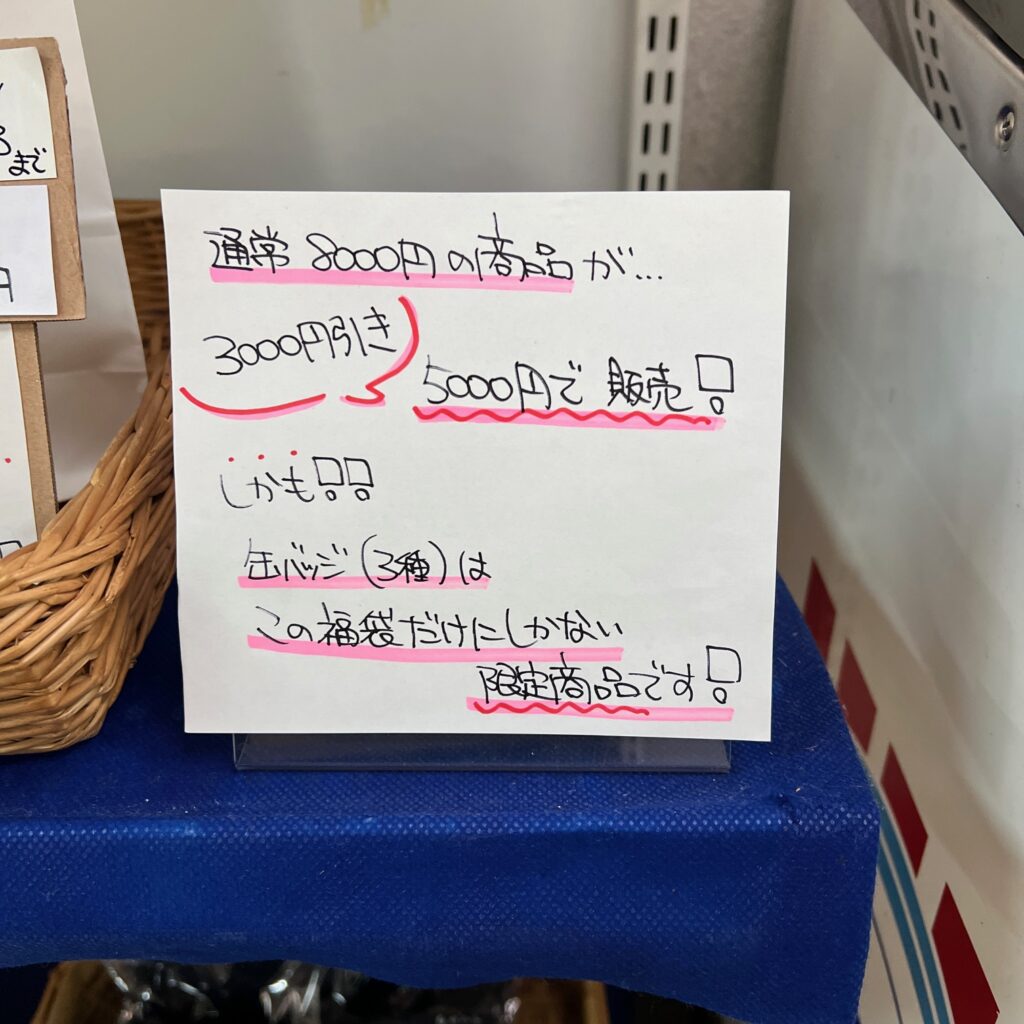 まで
円
通常 8000円の商品が...
3000円引き
5000円で 販売!
しかも!!
缶バッジ(3種)は
この福袋だけにしかない
限定商品です!